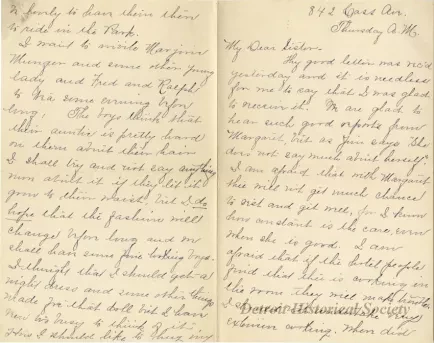 842 Cass Ave.
Thursday A.M.
My Dear Sister.
Thy good letter was rec'd
yesterday and it is needless
for me to say that I was glad
to receive it. We are glad to
hear such good reports from
"Margaret," but as Jim says "She
does not say much about herself."
I am afraid that with Margaret
thee will not get much chance
to rest and get well, for I know
how constant is the care, even
when she is good. I am
afraid that if the hotel people
find that thee is cooking in
the room they will make trouble
I
extension cooking. When did
to homely to have them then
to ride in the Park.
I want to invite Marjorie
Munger and some other young
lady and Fred and Ralph
to tea some evening before
long! The boys think that
their auntie is pretty hard
on them about their hair
I shall try and not say anything
more about it if they let it
grow to their waist but I do
hope that the fashions will
change before long and we
shall have some fine looking boys.
I thought that I should get a
night dress and some other things
made for that doll but I have
been so busy to think of it;
this I should like to
Detroit Historical Society